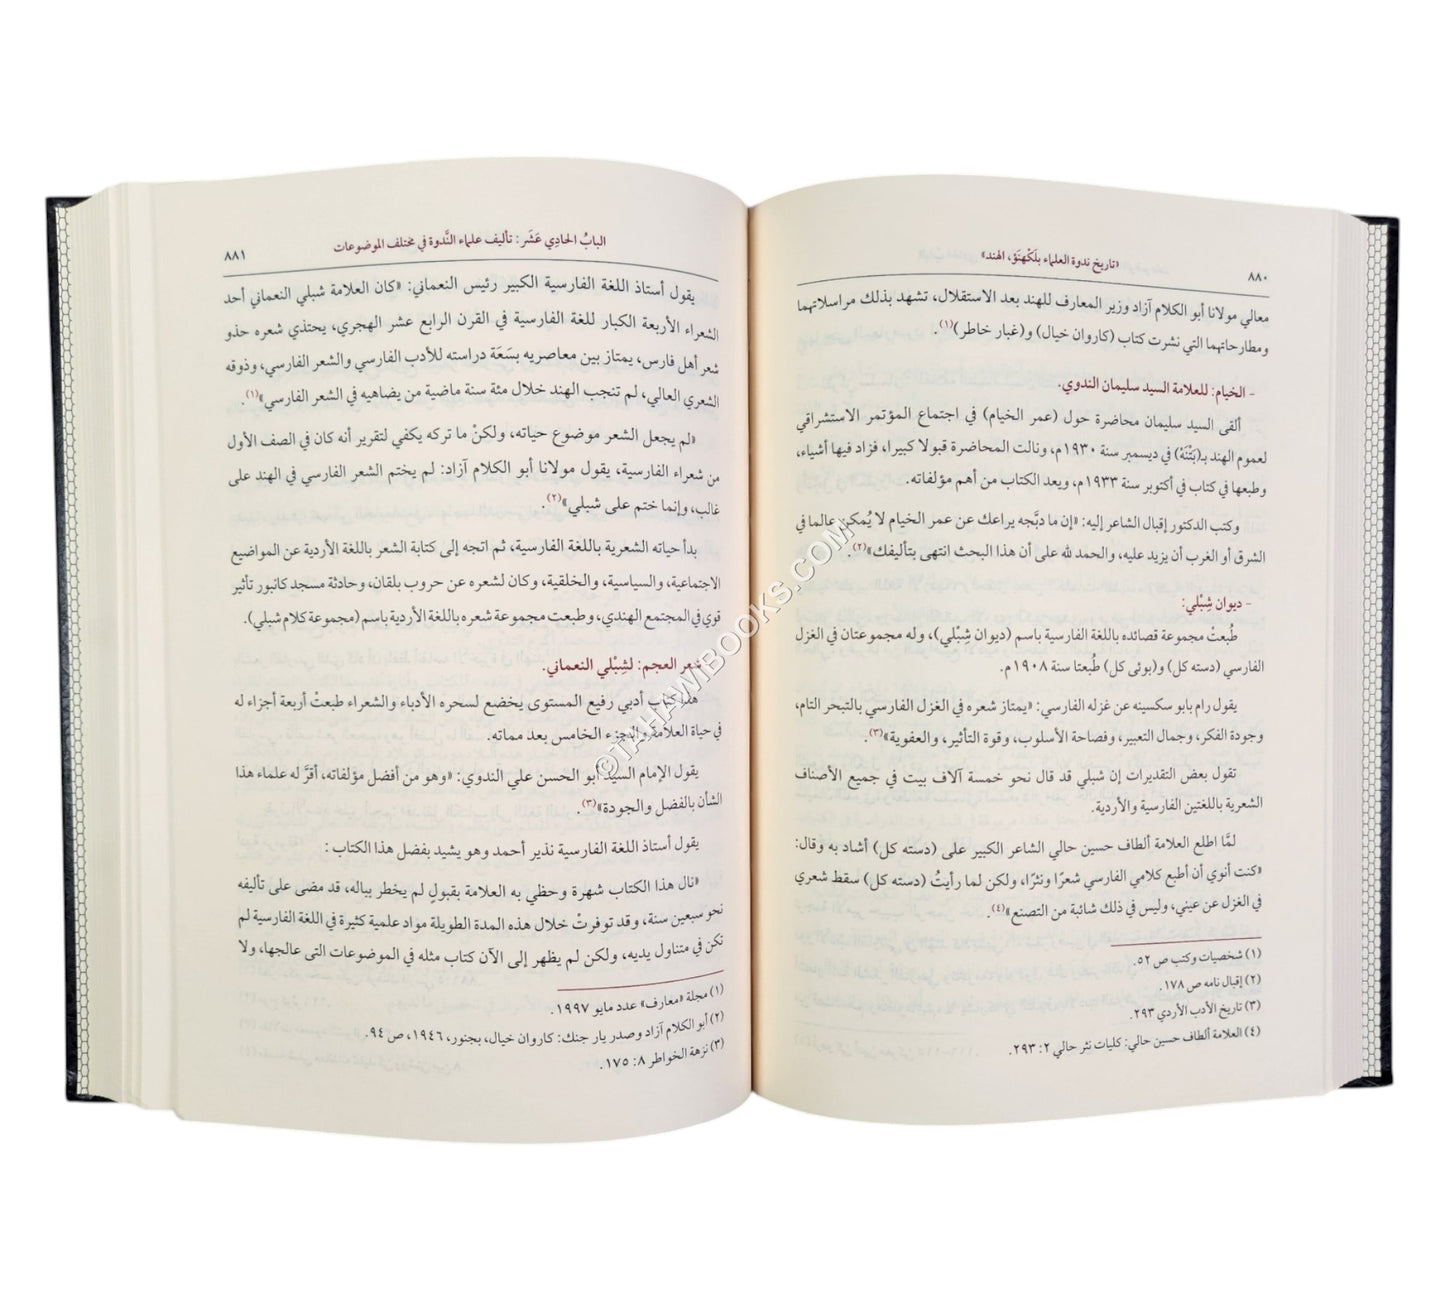 «تاريخ ندوة العلماء بلَكْهنَؤ، الهند»
٨٨٠
معالي مولانا أبو الكلام آزاد وزير المعارف للهند بعد الاستقلال، تشهد بذلك مراسلاتهما
ومطارحاتهما التي نشرت كتاب (كاروان خيال) و(غبار خاطر)(١).
- الخيام: للعلامة السيد سليمان الندوي.
ألقى السيد سليمان محاضرة حول (عمر الخيام) في اجتماع المؤتمر الاستشراقي
لعموم الهند بـ(بَتْنَة) في ديسمبر سنة ١٩٣٠م، ونالت المحاضرة قبولا كبيرا، فزاد فيها أشياء،
وطبعها في كتاب في أكتوبر سنة ١٩٣٣م، ويعد الكتاب من أهم مؤلفاته.
وكتب الدكتور إقبال الشاعر إليه: «إن ما دبَّجه يراعك عن عمر الخيام لا يُمكن عالما في
الشرق أو الغرب أن يزيد عليه، والحمد لله على أن هذا البحث انتهى بتأليفك»(٢).
- ديوان شِبْلي:
طُبعتْ مجموعة قصائده باللغة الفارسية باسم (ديوان شِبْلي)، وله مجموعتان في الغزل
الفارسي (دسته كل) و(بوئى كل) طُبعتا سنة ١٩٠٨م.
يقول رام بابو سكسينه عن غزله الفارسي: «يمتاز شعره في الغزل الفارسي بالتبحر التام،
وجودة الفكر، وجمال التعبير، وفصاحة الأسلوب، وقوة التأثير، والعفوية»(٣).
تقول بعض التقديرات إن شبلي قد قال نحو خمسة آلاف بيت في جميع الأصناف
الشعرية باللغتين الفارسية والأردية.
لمَّا اطلع العلامة ألطاف حسين حالي الشاعر الكبير على (دسته كل) أشاد به وقال:
«كنت أنوي أن أطبع كلامي الفارسي شعرًا ونثرًا، ولكن لما رأيتُ (دسته كل) سقط شعري
في الغزل عن عيني، وليس في ذلك شائبة من التصنع»(٤).
(١) شخصيات وكتب ص ٥٢.
(٢) إقبال نامه ص ١٧٨.
(٣) تاريخ الأدب الأردي ٢٩٣.
(٤) العلامة ألطاف حسين حالي: كليات نثر حالي ٢: ٢٩٣.
البابُ الحادِي عَشَر: تأليف علماء النَّدوة في مختلف الموضوعات
٨٨١
يقول أستاذ اللغة الفارسية الكبير رئيس النعماني: «كان العلامة شبلي النعماني أحد
الشعراء الأربعة الكبار للغة الفارسية في القرن الرابع عشر الهجري، يحتذي شعره حذو
شعر أهل فارس، يمتاز بين معاصريه بسَعَة دراسته للأدب الفارسي والشعر الفارسي، وذوقه
الشعري العالي، لم تنجب الهند خلال مئة سنة ماضية من يضاهيه في الشعر الفارسي»(١).
«لم يجعل الشعر موضوع حياته، ولكنْ ما تركه يكفي لتقرير أنه كان في الصف الأول
من شعراء الفارسية، يقول مولانا أبو الكلام آزاد: لم يختم الشعر الفارسي في الهند على
غالب، وإنما ختم على شبلي»(٢).
بدأ حياته الشعرية باللغة الفارسية، ثم اتجه إلى كتابة الشعر باللغة الأردية عن المواضيع
الاجتماعية، والسياسية، والخلقية، وكان لشعره عن حروب بلقان، وحادثة مسجد كانبور تأثير
قوي في المجتمع الهندي، وطبعت مجموعة شعره باللغة الأردية باسم (مجموعة كلام شبلي).
شعر العجم: لشِبْلي النعماني.
هذا كتاب أدبي رفيع المستوى يخضع لسحره الأدباء والشعراء طبعتْ أربعة أجزاء له
في حياة العلامة والجزء الخامس بعد مماته.
يقول الإمام السيد أبو الحسن علي الندوي: «وهو من أفضل مؤلفاته، أقرَّ له علماء هذا
الشأن بالفضل والجودة»(٣).
يقول أستاذ اللغة الفارسية نذير أحمد وهو يشيد بفضل هذا الكتاب :
«نال هذا الكتاب شهرة وحظي به العلامة بقبولٍ لم يخطر بباله، قد مضى على تأليفه
نحو سبعين سنة، وقد توفرتْ خلال هذه المدة الطويلة مواد علمية كثيرة في اللغة الفارسية لم
تكن في متناول يديه، ولكن لم يظهر إلى الآن كتاب مثله في الموضوعات التى عالجها، ولا
(١) مجلة «معارف» عدد مايو ١٩٩٧.
(٢) أبو الكلام آزاد وصدر يار جنك: كاروان خيال، بجنور، ١٩٤٦، ص ٩٤.
(٣) نزهة الخواطر ٨: ١٧٥.
©TAHAWIBOOKS.COM